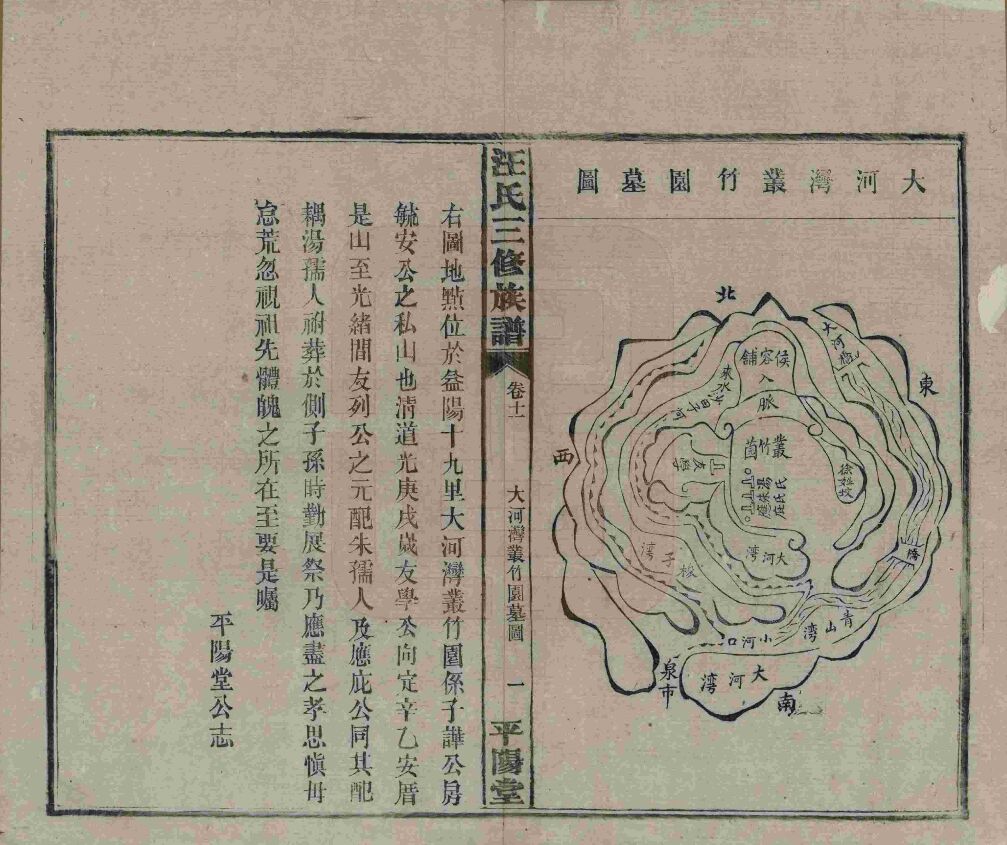 大河灣叢竹園墓圖
北
東
西
南
大河灣
侯容舖
入脈
來水沙
河子
叢竹
友學
湯氏
朱氏
應庇
徐姓坟
大河湾
板子湾
橋
青山湾
小河口
大河湾
泉市
汪氏三修族譜
卷十一
大河灣叢竹園墓圖
一
平陽堂
右圖地點位於益陽十九里大河灣叢竹園係子譁公房
毓安公之私山也清道光庚戌歲友學公向定辛乙安厝
是山至光緒間友列公之元配朱孺人及應庇公同其配
耦湯孺人祔葬於側子孫時勤展祭乃應盡之孝思愼毋
怠荒忽視祖先體魄之所在至要是囑
平陽堂公志